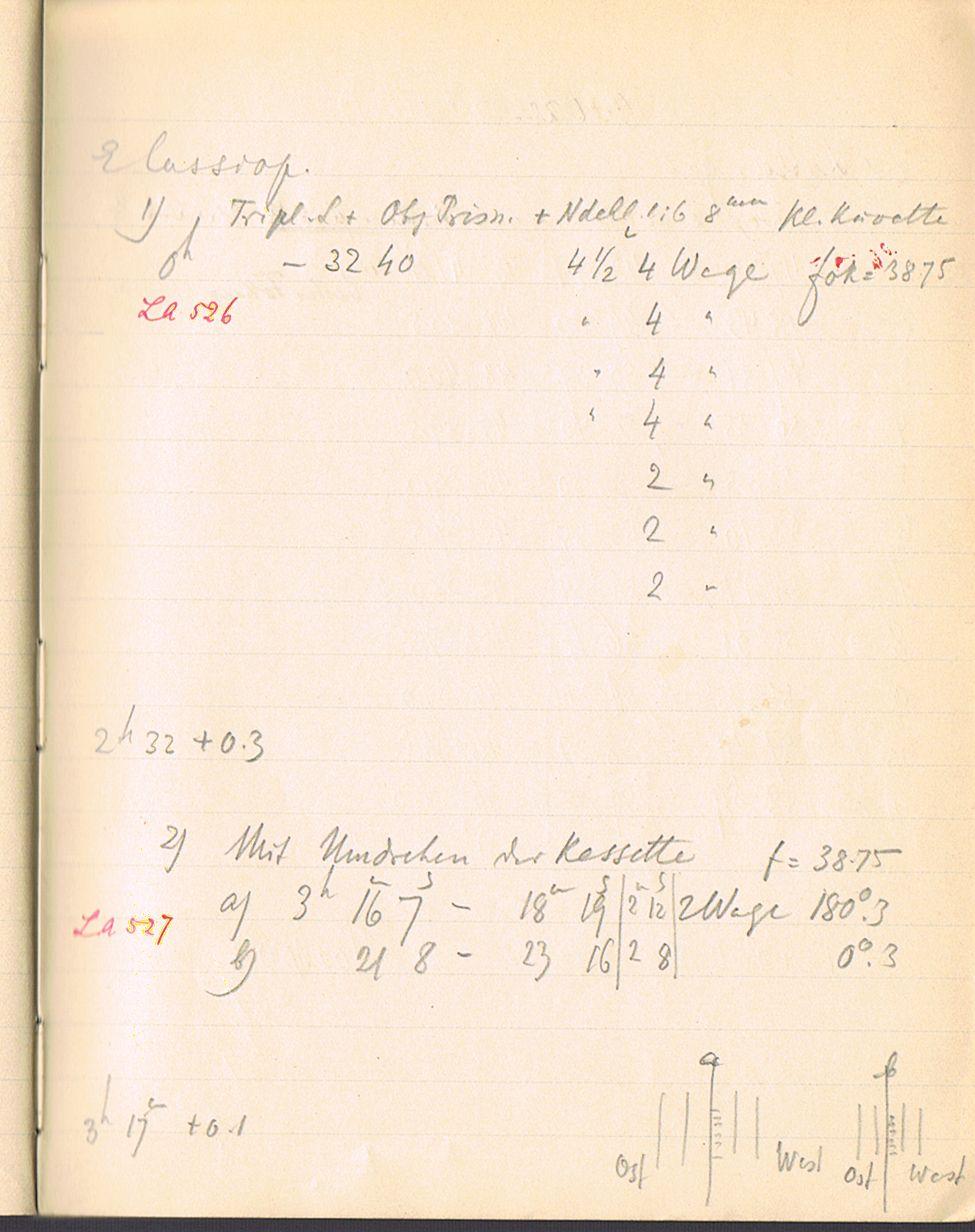 Cassiop.
1) Tripl. L + Obj Prism. + 8 mm Kl. Küvette
0h - 32 40 4 1/2 4 Wege fok = 38 75
La 526
" 4 "
" 4 "
" 4 "
2 "
2 "
2 "
2h 32 + 0.3
2) Mit Umdrehen der Kassette f = 38.75
a) 3h 16m 7s - 18m 19s | 2m 12s | 2 Wege 180°.3
La 527
b) 21 8 - 23 16 | 2 8 | 0°.3
a b
3h 17m + 0.1
Ost West Ost West